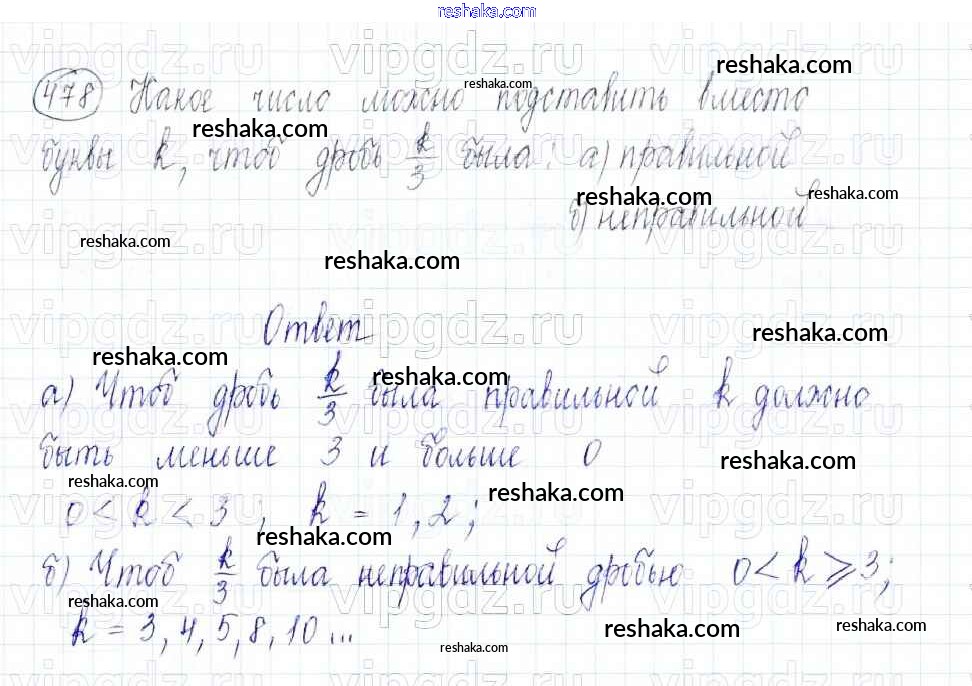 reshaka.com
478 Какое число можно подставить вместо
буквы k, чтоб дробь k/3 была: а) правильной
б) неправильной
Ответ
а) Чтоб дробь k/3 была правильной k должно
быть меньше 3 и больше 0
0 < k < 3; k = 1, 2;
б) Чтоб k/3 была неправильной дробью 0 < k ⩾ 3;
k = 3, 4, 5, 8, 10 ...
vipgdz.ru
reshaka.com